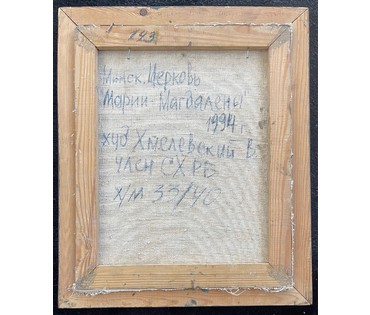 143
Минск. Церковь
"Марии Магдалены"
1994 г.
худ Хмелевский В.
член СХ РБ
х/м 33/40